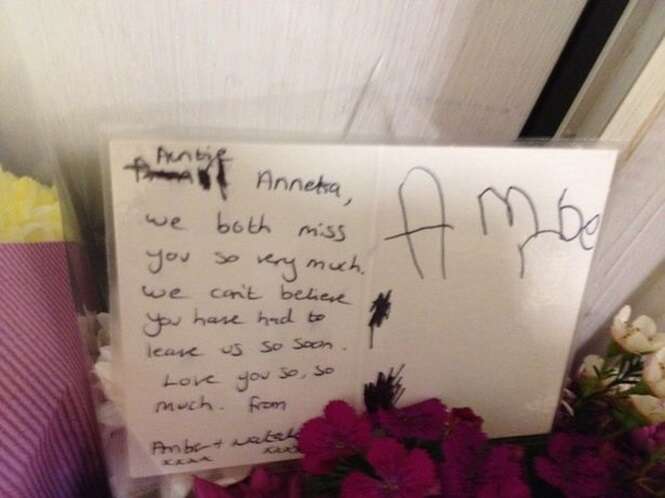 Auntie
Annetta,
we both miss
you so very much.
we can't believe
you have had to
leave us so soon.
Love you so, so
much. from
Amber +
xxxx xxx
Amber